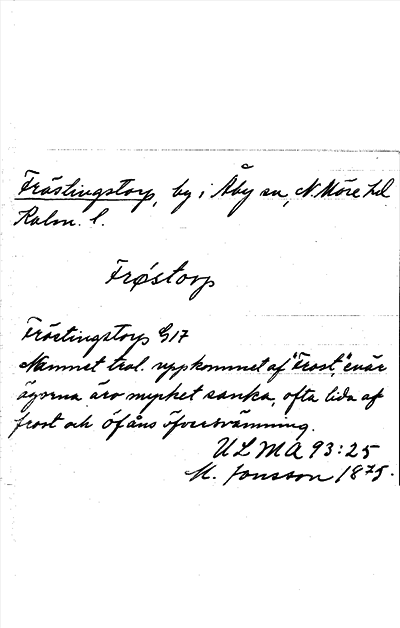 Fröstingstorp, by i Åby sn, N. Möre hd
Kalm. l.
Frøstorp
Fröstingstorp G17
Namnet trol. uppkommet af "Frost", enär
ägorna äro mycket sanka, ofta lida af
frost och af åns öfversvämning.
ULMA 93:25
M. Jonsson 1875.